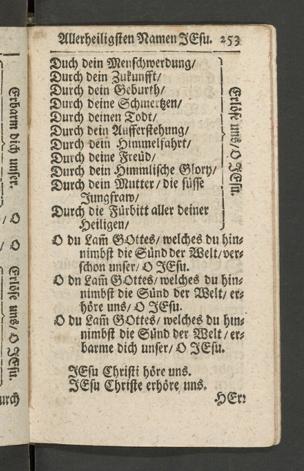 Allerheiligsten Namen JEsu. 253
Duch dein Menschwerdung/
Durch dein Zukunfft/
Durch dein Geburth/
Durch deine Schmertzen/
Durch deinen Todt/
Durch dein Aufferstehung/
Durch dein Himmelfahrt/
Durch deine Freüd/
Durch dein Himmlische Glory/
Durch dein Mutter/ die süsse
Jungfraw/
Durch die Fürbitt aller deiner
Heiligen/
Erlöse uns/ O JEsu.
O du Lam̃ GOttes/ welches du hin-
nimbst die Sünd der Welt/ ver-
schon unser/ O JEsu.
O du Lam̃ GOttes/ welches du hin-
nimbst die Sünd der Welt/ er-
höre uns/ O JEsu.
O du Lam̃ GOttes/ welches du hin-
nimbst die Sünd der Welt/ er-
barme dich unser/ O JEsu.
JEsu Christi höre uns.
JEsu Christe erhöre uns.
HErr
Erbarm dich unser.
O
/ O
Erlöse uns/ O JEsu.
urch